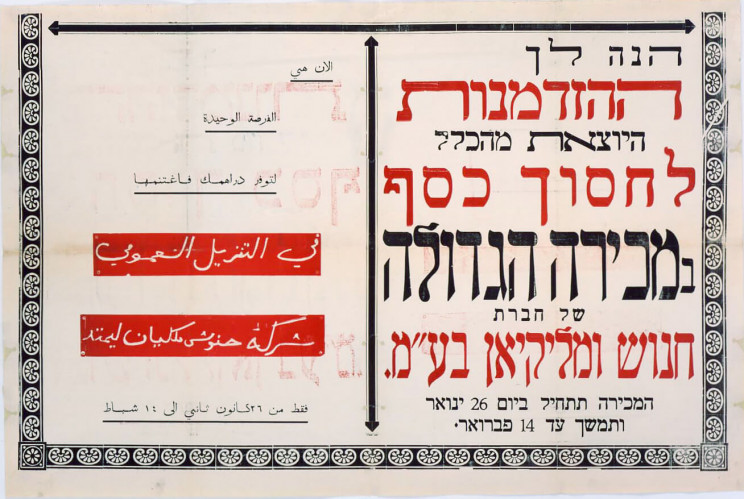 הנה לך
ההזדמנות
היוצאת מהכלל
לחסוך כסף
במכירה הגדולה
של חברת
חנוש ומליקיאן בע"מ.
המכירה תתחיל ביום 26 ינואר
ותמשך עד 14 פברואר.
الان هي
الفرصة الوحيدة
لتوفر دراهمك فاغتنمها
في التنزيل العمومي
شركة حنوش مكليان ليمتد
فقط من ٢٦ كانون ثاني الى ١٤ شباط